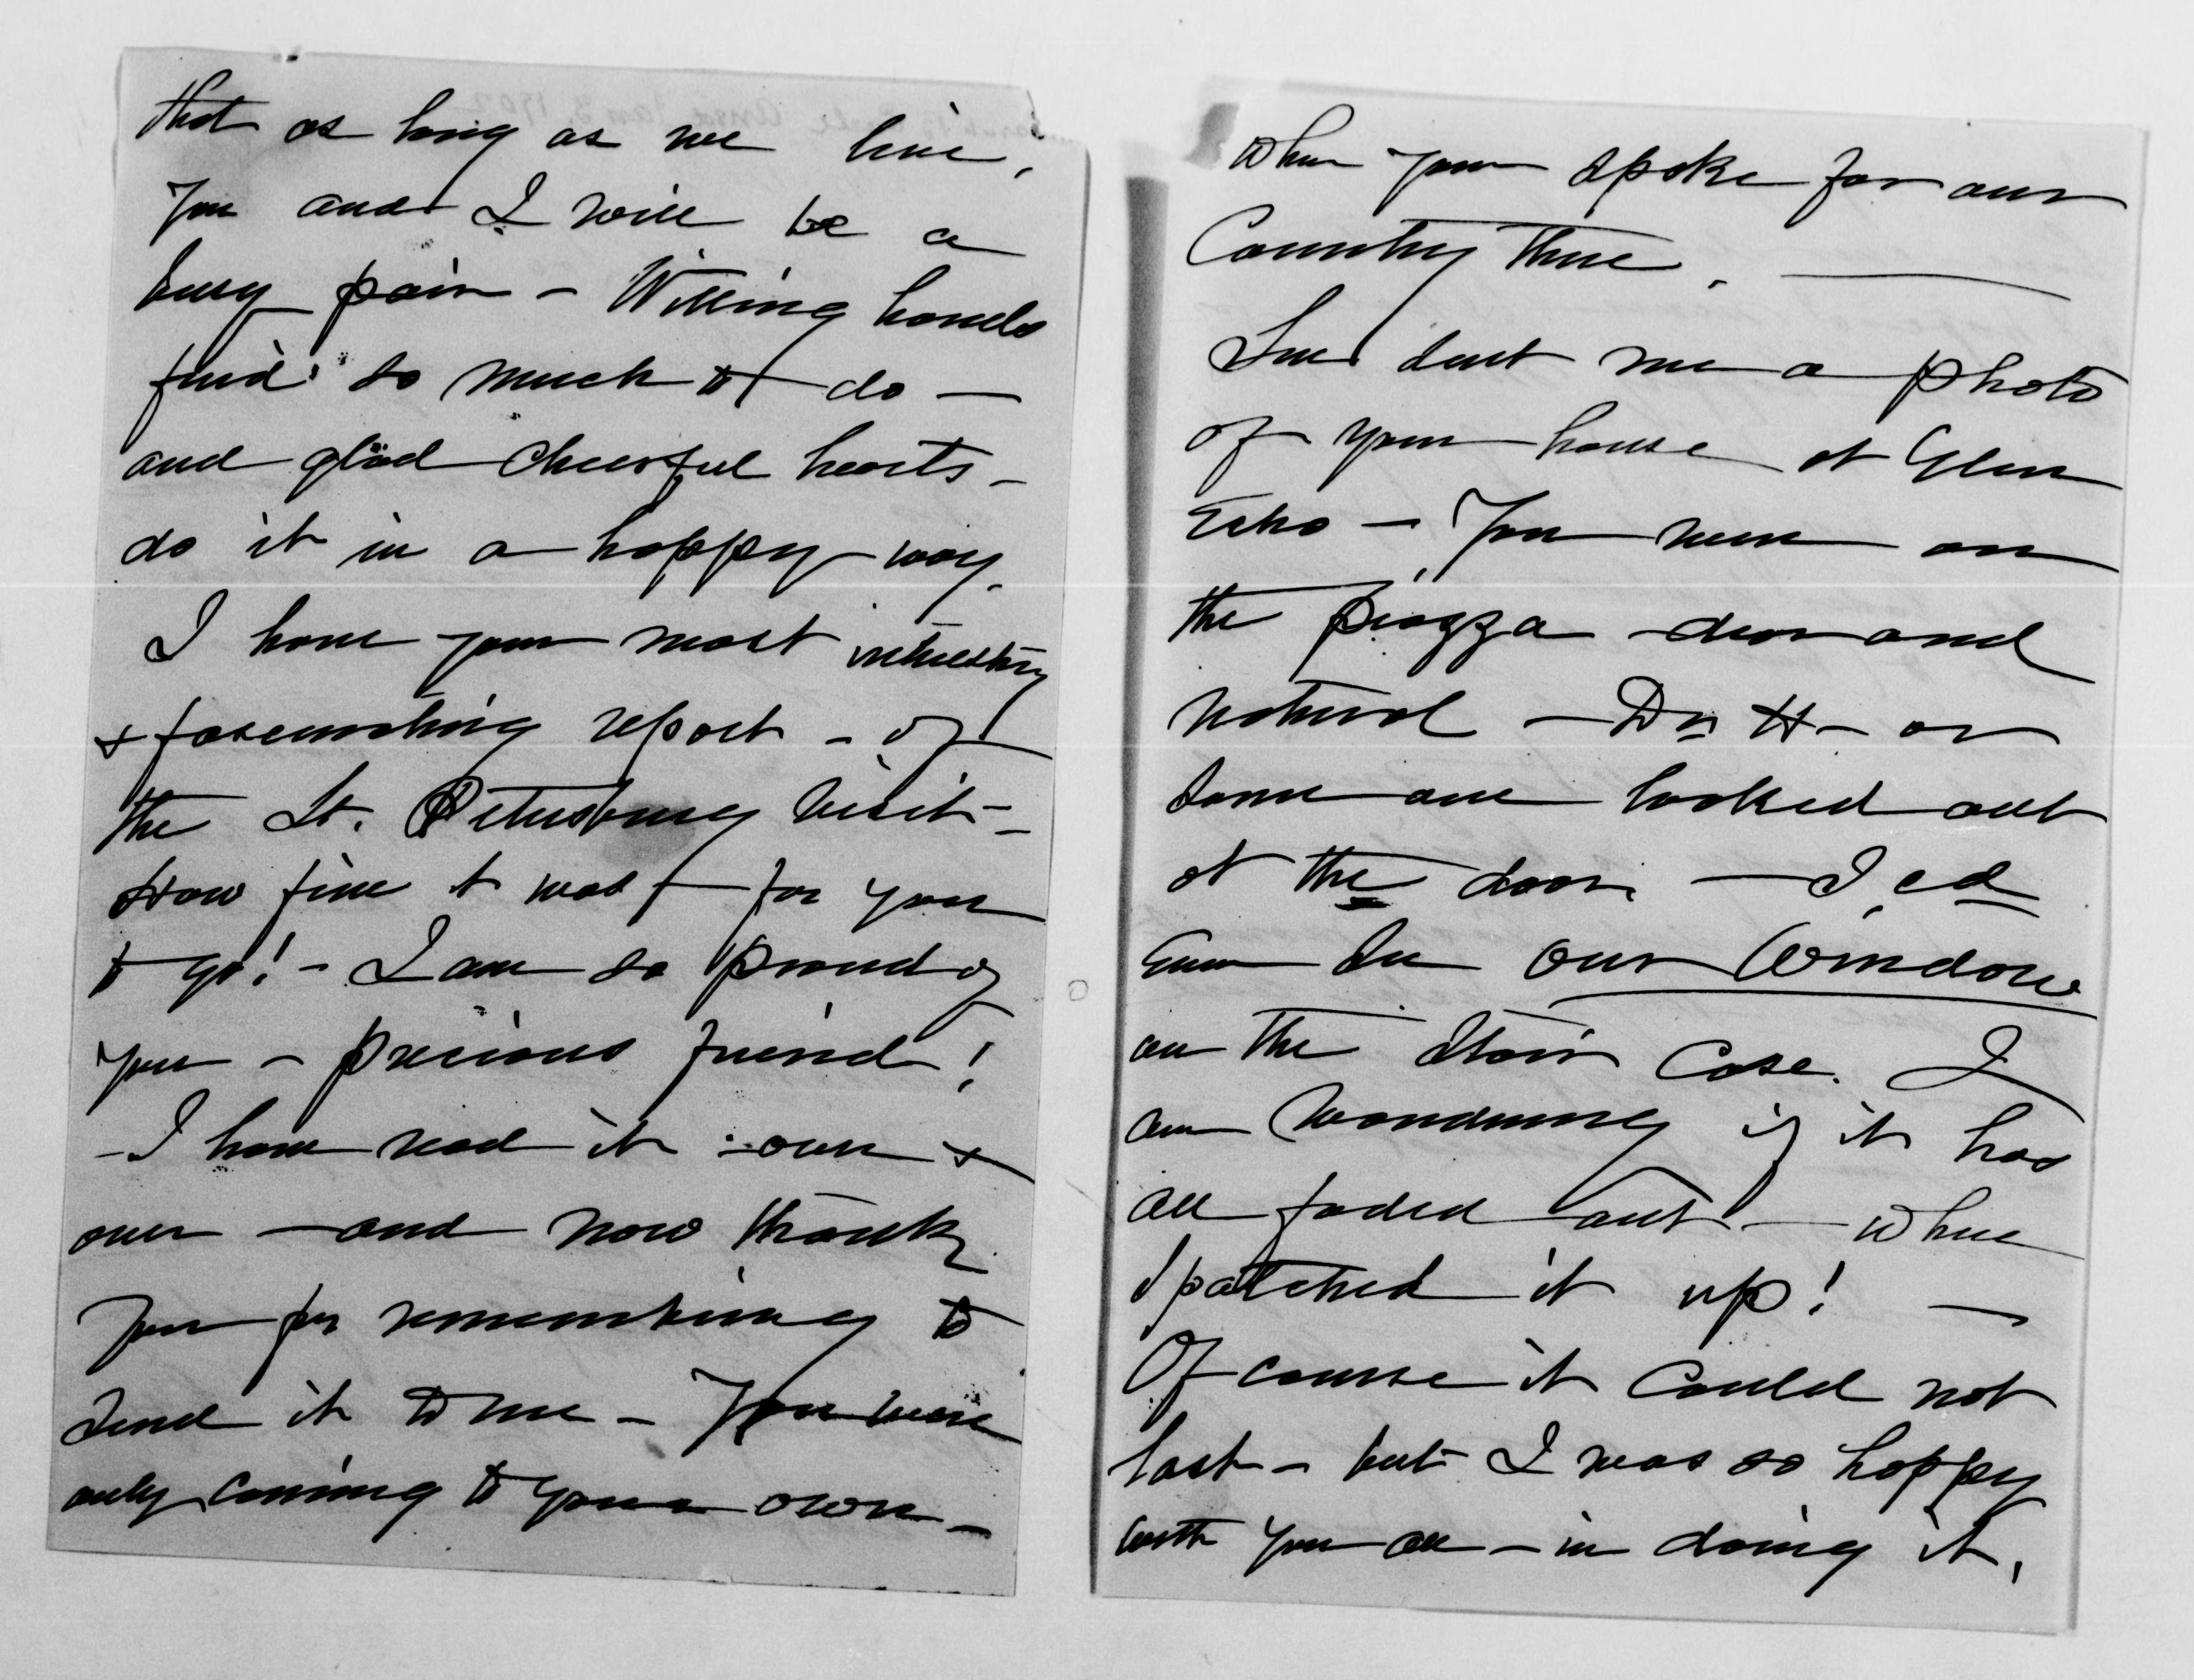 that as long as we live,
You and I will be a
busy pair - Willing hands
find so much to do -
and glad cheerful hearts -
do it in a happy way.
I have your most interesting
& fascinating report - of
the St. Petersburg visit -
How fine it was - for you
to go! - I am so proud of
you - precious friend!
- I have read it over &
over - and now thank
you for remembering to
send it to me - You were
only coming to your own -
when you spoke for our
Country there. -
Sue sent me a photo
of your house at Glen
Echo - You were on
the piazza - dear and
natural - Dr H - or
some one looked out
at the door. - I cd
even see our Window
on the Stair Case. I
am wondering if it has
all faded out - where
I patched it up! -
Of course it could not
last - but I was so happy
with you all - in doing it,